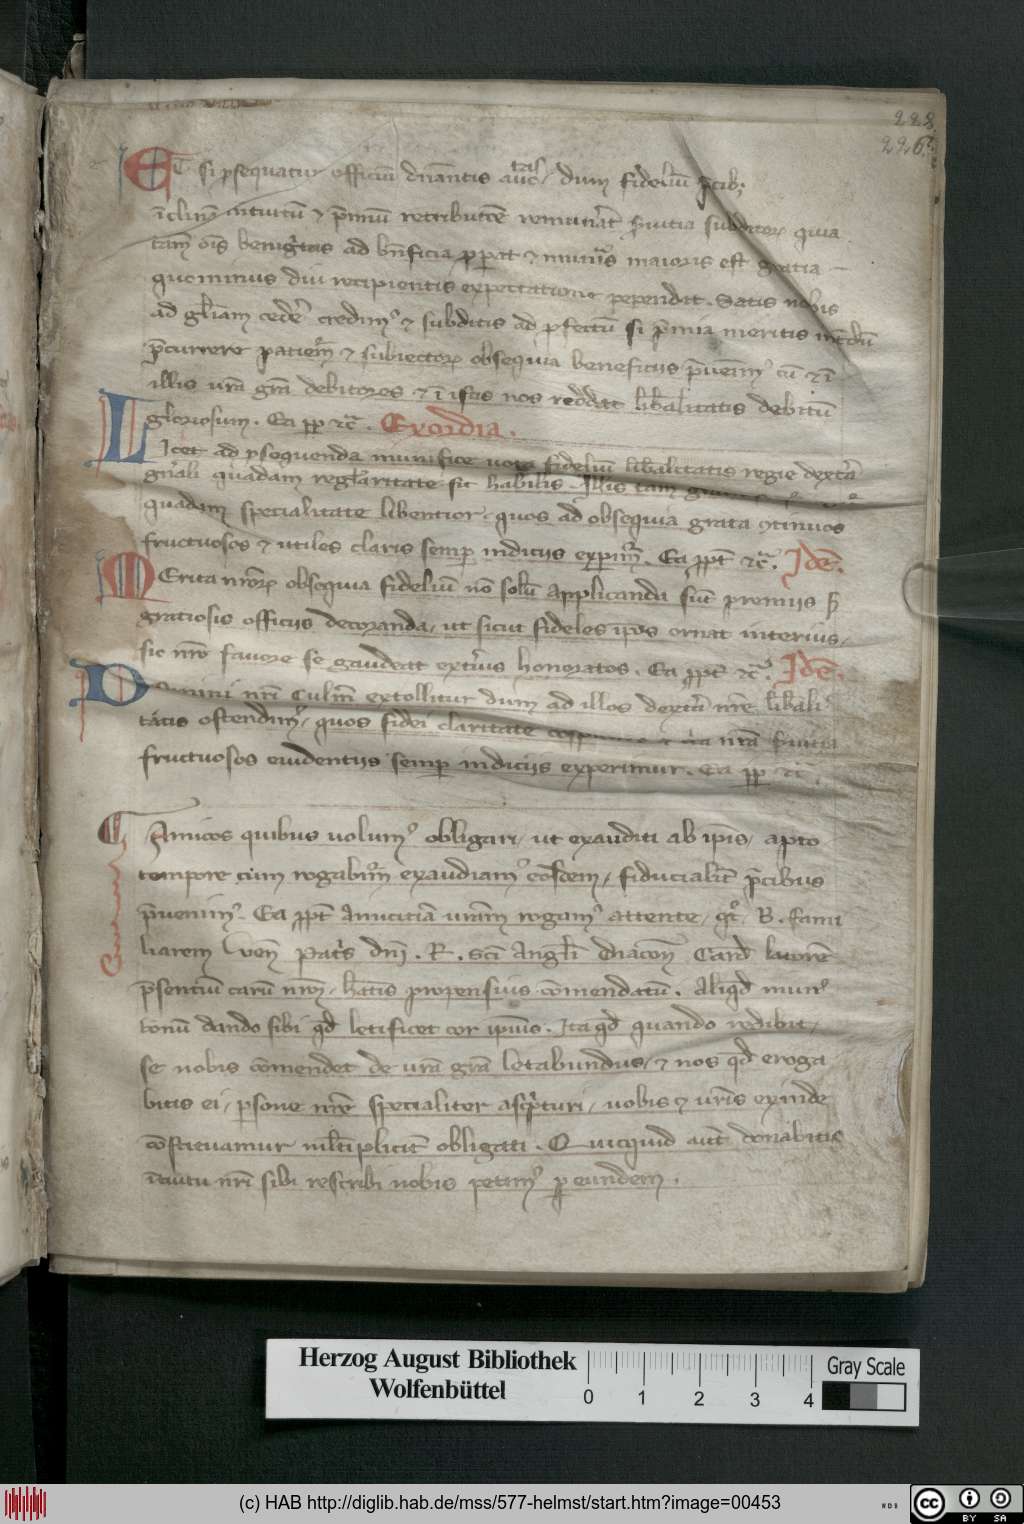 228.
226.
Et si ꝓsequatur officiū dn̄antis auc̄tas / dum fideliū p̄cibꝫ
īclinat̄ intuitū ⁊ p̄miū retributōe remun̄at s̄uitia subditoꝝ quia
tam̄ oīs benig̈tas ad bn̄ficia
quominus diu recipientis expectatione pependit . Satis nobis
ad gl̄iam cedēr credimꝰ ⁊ subditis ad ꝓfectū si p̄mia meritis
p̄currere patiem̄ ⁊ subiectoꝝ obsequia beneficiis p̄uenimꝰ cū ⁊ ī
illis urā grā debitores ⁊ ī istis nos reddat lib̄alitatis debitū
gloriosum . Ea ꝓp ⁊c̄ . Exordia .
Licet ad ꝓsequenda munifice uota fideliū lib̄alitatis regie dext̄a
gn̄ali quadam regl̄aritate sit habilis . Illis tam̄
quadam specialitate libentior / quos ad obsequia grata ꝯtinuos
fructuosos ⁊ utiles claris semꝑ indiciis exꝑim̄ . Ea ꝓpt̄ ⁊c̄ . Idē .
Merita nr̄oꝝ obsequia fideliū nō solū applicanda sūt premiis s̄
gratiosis officiis decoranda / ut sicut fideles ip̄os ornat interius /
sic nr̄o fauore se gaudeāt ext̄ius honoratos . Ea ꝓpt̄ ⁊c̄ . Idē .
Domini nr̄i culm̄ extollitur dum ad illos dext̄a nr̄e lib̄ali
tatis ostendim̄ / quos fidei claritate
fructuosos euidentiis semꝑ indiciis experimur . Ea ꝓp ⁊c̄ .
Amicos quibus uolumꝰ obligari / ut exauditi ab ip̄is / apto
tempore cum rogabim̄ exaudiamꝰ eosdem / fiducialit̄ p̄cibus
p̄uenimꝰ . Ea ꝓpt̄ Amicitiā urām rogamꝰ attente / qt̄ / B . fami
liarem Uen̄ Pat̄s dn̄i . R . sc̄i Angl̄i Diacon̄ Card̄ latorē
p̄sentiū carū nr̄m / h̄atis propensius cōmendatū . Aliqd̄ mun̄
bonū dando sibi qd̄ letificet cor ip̄ius . Ita qd̄ quando redibit /
se nobis cōmendet de urā grā letabundus / ⁊ nos qd̄ eroga
bitis ei / ꝑsone nr̄e specialiter asc̄pturi / uobis ⁊ ur̄is exinde
cōstituamur ml̄tiplicit̄ obligati . Quicquid aut̄ donabitis
īt̄uitu nr̄i sibi rescribi nobis petimꝰ ꝑ eundem .
Herzog August Bibliothek
Wolfenbüttel
0 1 2 3 4
Gray Scale
(c) HAB http://diglib.hab.de/mss/577-helmst/start.htm?image=00453
WDB
cc BY SA